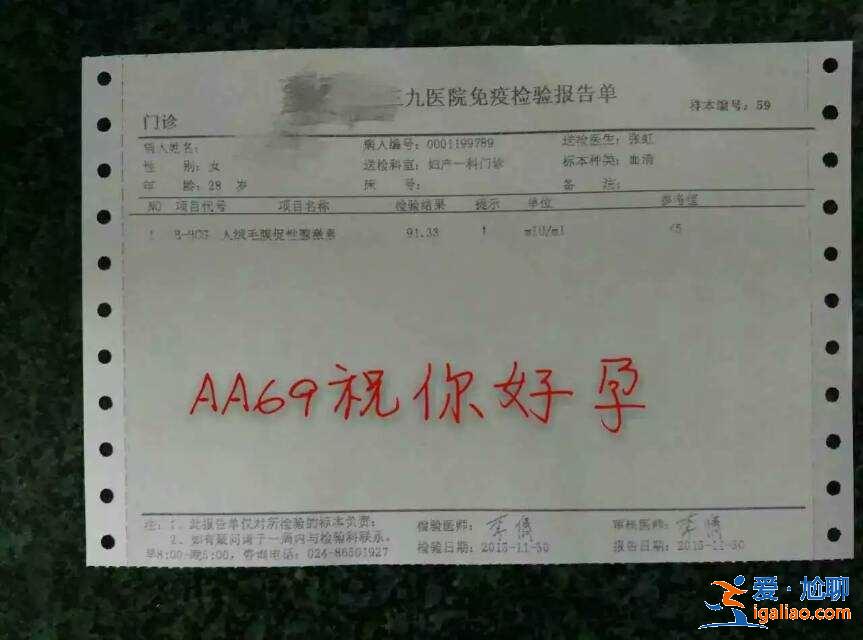 三九医院免疫检验报告单
样本编号：59
门诊
病人姓名： 病人编号：0001199789 送检医生：张虹
性 别：女 送检科室：妇产一科门诊 标本种类：血清
年 龄：28 岁 床 号： 备 注：
NO 项目代号 项目名称 检验结果 提示 单位 参考值
1 B-HCG 人绒毛膜促性腺激素 91.33 ↑ mIU/ml <5
AA69祝你好孕
注：1、此报告单仅对所检验的标本负责；
2、如有疑问请于一周内与检验科联系。
早8:00-晚5:00，咨询电话：024-86501927
检验医师：
检验日期：2015-11-30
审核医师：
报告日期：2015-11-30
爱·尬聊
igaliao.com